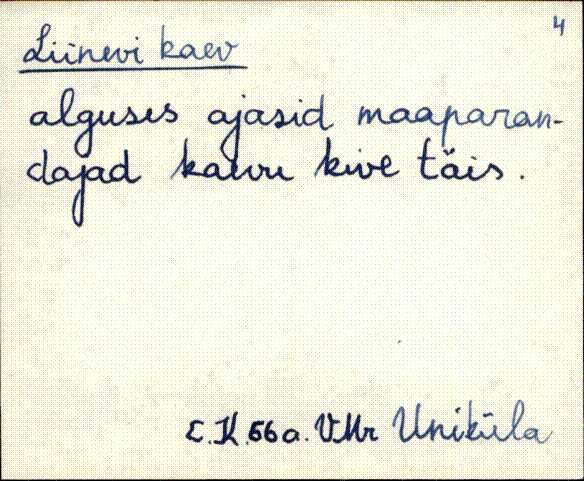 4
Liinevi kaev
alguses ajasid maaparan-
dajad kaevu kive täis.
E.K. 56 a. VMr Uniküla